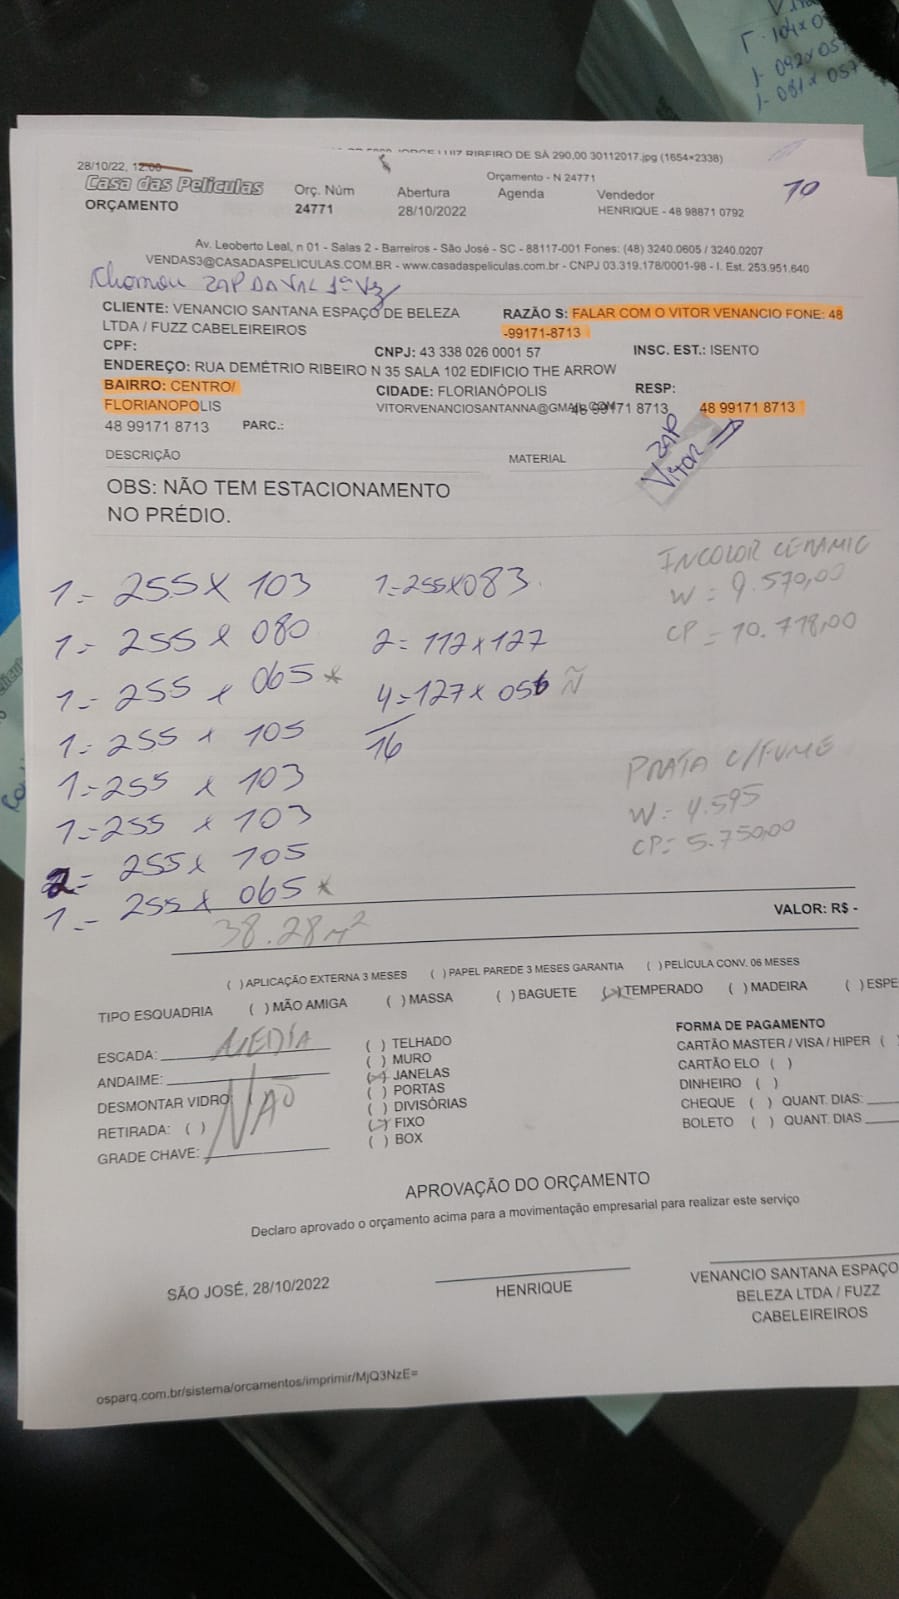 V
1- 104x0
1- 092x057
1- 081x057
JORGE LUIZ RIBEIRO DE SÁ 290,00 30112017.jpg (1654×2338)
28/10/22, 12:00
Orçamento - N 24771
Casa das Películas
ORÇAMENTO
Orç. Núm
24771
Abertura
28/10/2022
Agenda
Vendedor
HENRIQUE - 48 98871 0792
10
Av. Leoberto Leal, n 01 - Salas 2 - Barreiros - São José - SC - 88117-001 Fones: (48) 3240.0605 / 3240.0207
VENDAS3@CASADASPELICULAS.COM.BR - www.casadaspeliculas.com.br - CNPJ 03.319.178/0001-98 - I. Est. 253.951.640
Chamou ZAP DA VAL 1ª Vez
CLIENTE: VENANCIO SANTANA ESPAÇO DE BELEZA
LTDA / FUZZ CABELEIREIROS
RAZÃO S: FALAR COM O VITOR VENANCIO FONE: 48
-99171-8713
CPF:
CNPJ: 43 338 026 0001 57
INSC. EST.: ISENTO
ENDEREÇO: RUA DEMÉTRIO RIBEIRO N 35 SALA 102 EDIFICIO THE ARROW
BAIRRO: CENTRO/
FLORIANOPOLIS
CIDADE: FLORIANÓPOLIS
RESP:
VITORVENANCIOSANTANNA@GMAIL.COM
48 99171 8713
48 99171 8713
48 99171 8713
PARC.:
ZAP
VITOR
DESCRIÇÃO
MATERIAL
OBS: NÃO TEM ESTACIONAMENTO
NO PRÉDIO.
1= 255 x 103
1= 255 x 080
1= 255 x 065 *
1= 255 x 105
1= 255 x 103
1= 255 x 103
2= 255 x 105
1= 255 x 065 *
1=255x083
2= 112 x 127
4=127x 056 Ñ
16
INCOLOR CERAMIC
W = 9.570,00
CP = 10.718,00
PRATA C/FUME
W= 4.595
CP= 5.750,00
38.28 m²
VALOR: R$ -
( ) APLICAÇÃO EXTERNA 3 MESES ( ) PAPEL PAREDE 3 MESES GARANTIA ( ) PELÍCULA CONV. 06 MESES
TIPO ESQUADRIA ( ) MÃO AMIGA ( ) MASSA ( ) BAGUETE (x) TEMPERADO ( ) MADEIRA ( ) ESPE
ESCADA: MEDIA
ANDAIME:
DESMONTAR VIDRO: (
RETIRADA: ( )
GRADE CHAVE:
NÃO
( ) TELHADO
( ) MURO
(x) JANELAS
( ) PORTAS
( ) DIVISÓRIAS
(x) FIXO
( ) BOX
FORMA DE PAGAMENTO
CARTÃO MASTER / VISA / HIPER (
CARTÃO ELO ( )
DINHEIRO ( )
CHEQUE ( ) QUANT. DIAS:
BOLETO ( ) QUANT. DIAS
APROVAÇÃO DO ORÇAMENTO
Declaro aprovado o orçamento acima para a movimentação empresarial para realizar este serviço
SÃO JOSÉ, 28/10/2022
HENRIQUE
VENANCIO SANTANA ESPAÇO
BELEZA LTDA / FUZZ
CABELEIREIROS
osparq.com.br/sistema/orcamentos/imprimir/MjQ3NzE=